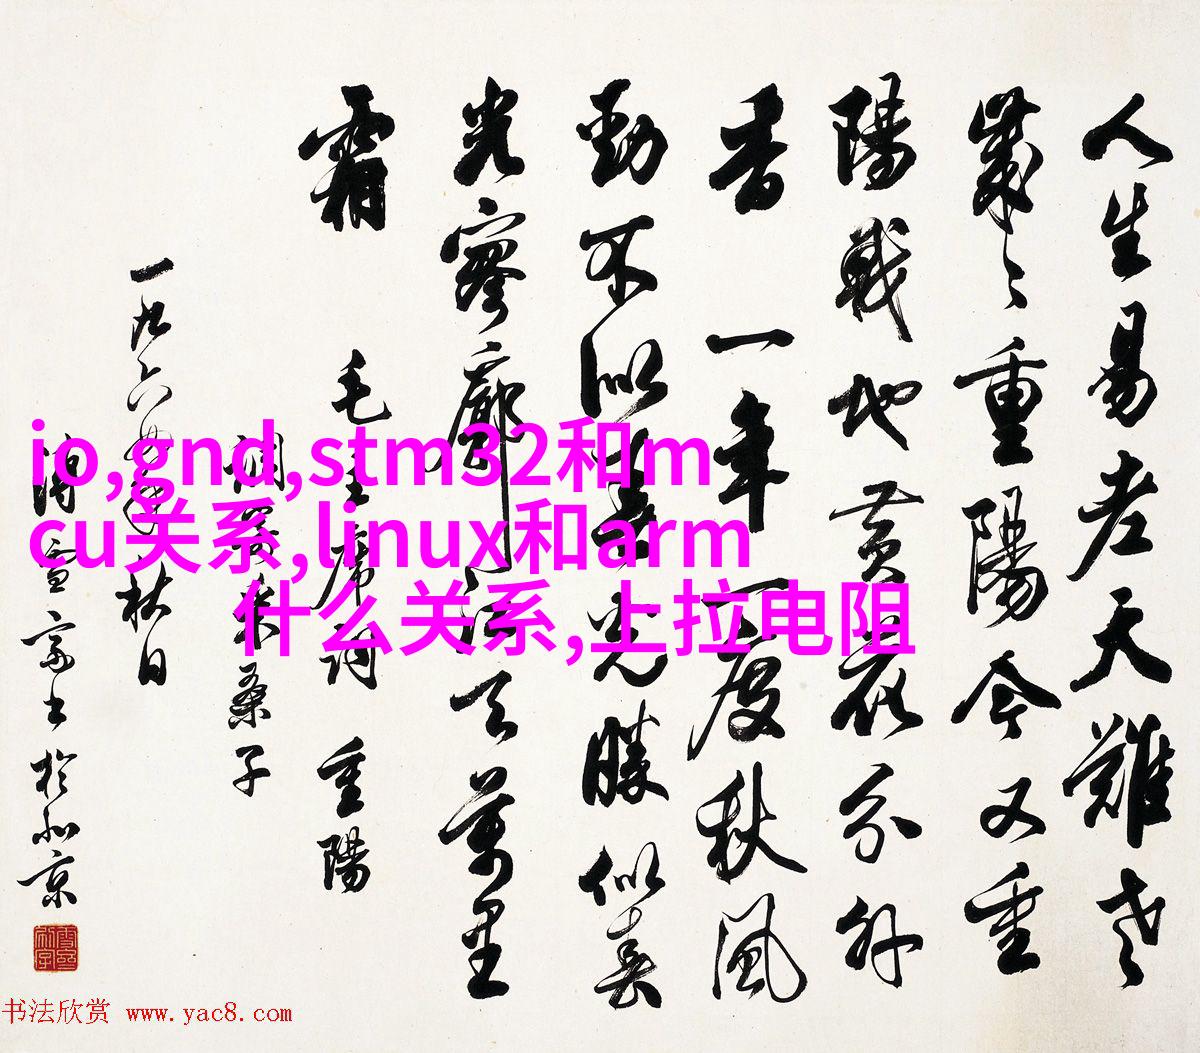 人生易老天難老
歲々重陽今又重
陽戰地黃花分外
香 一年一度秋風
勁不似春光勝似春
光寥廓江天萬里
霜
毛主席詞 重陽
調寄采桑子
一九六年秋日
溥書於北京
io,gnd,stm32和m
cu关系,linux和arm
什么关系,上拉电阻
书法欣赏 www.yac8.com